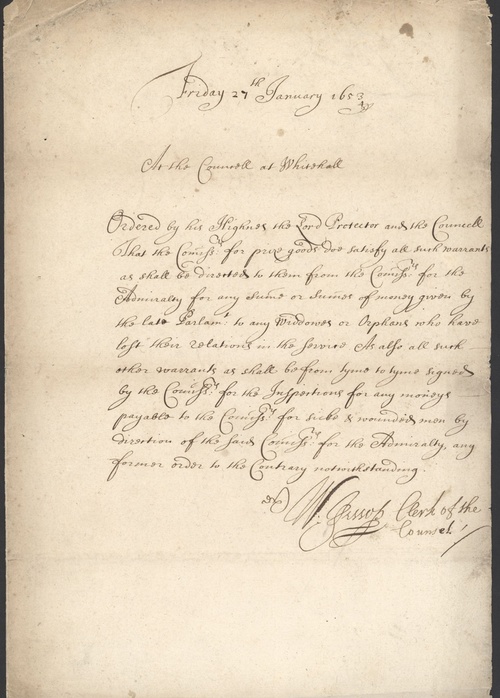 Friday 27th January 1653/4
At the Councell at Whitehall
Ordered by his Highnes the Lord Protector and the Councell
That the Comissrs for prize goods doe satisfy all such warrants
as shall be directed to them from the Comissrs for the
Admiralty for any sume or sumes of money given by
the late Parlamt to any Widdowes or Orphans who have
lost their relations in the service As also all such
other warrants as shall be from tyme to tyme signed
by the Comissrs for the Inspections for any moneys
payable to the Comissrs for sicke & wounded men by
direction of the said Comissrs for the Admiralty, any
former order to the Contrary notwithstanding.
W. Jessop Clerk of the
Counsel